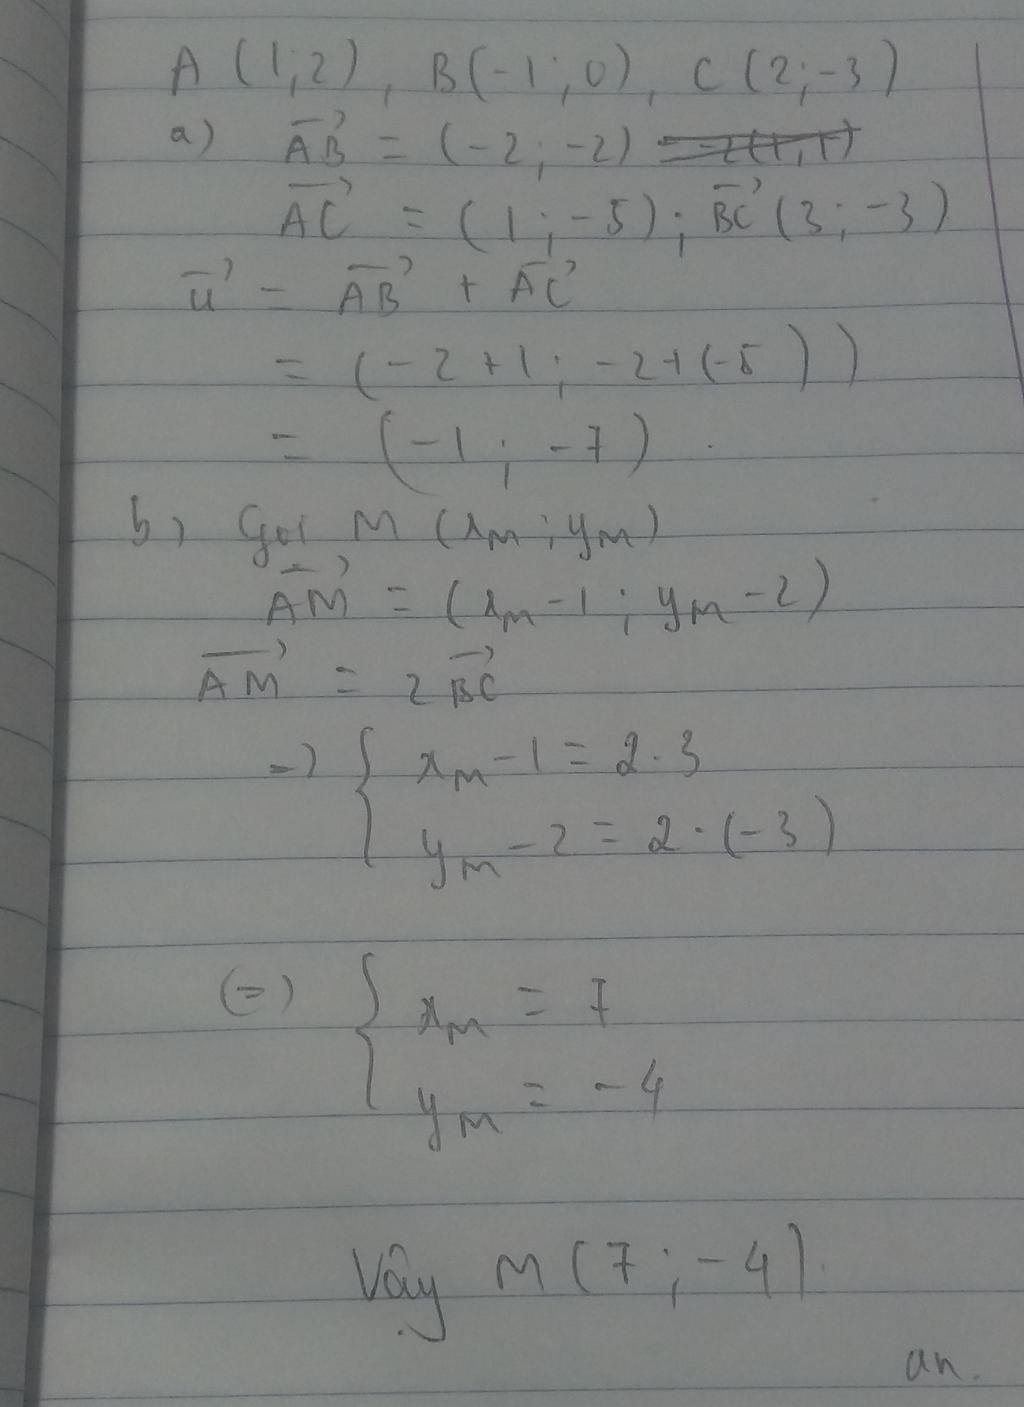 A (1;2), B(-1;0), C(2;-3)
a) AB⃗ = (-2;-2)
AC⃗ = (1;-5); BC⃗ (3;-3)
u⃗ = AB⃗ + AC⃗
= (-2+1; -2+(-5))
= (-1; -7).
b) Gọi M (xM; yM)
AM⃗ = (xM-1; yM-2)
AM⃗ = 2BC⃗
=> { xM-1 = 2.3
yM-2 = 2.(-3)
(=) { xM = 7
yM = -4
Vậy M(7;-4).
an.